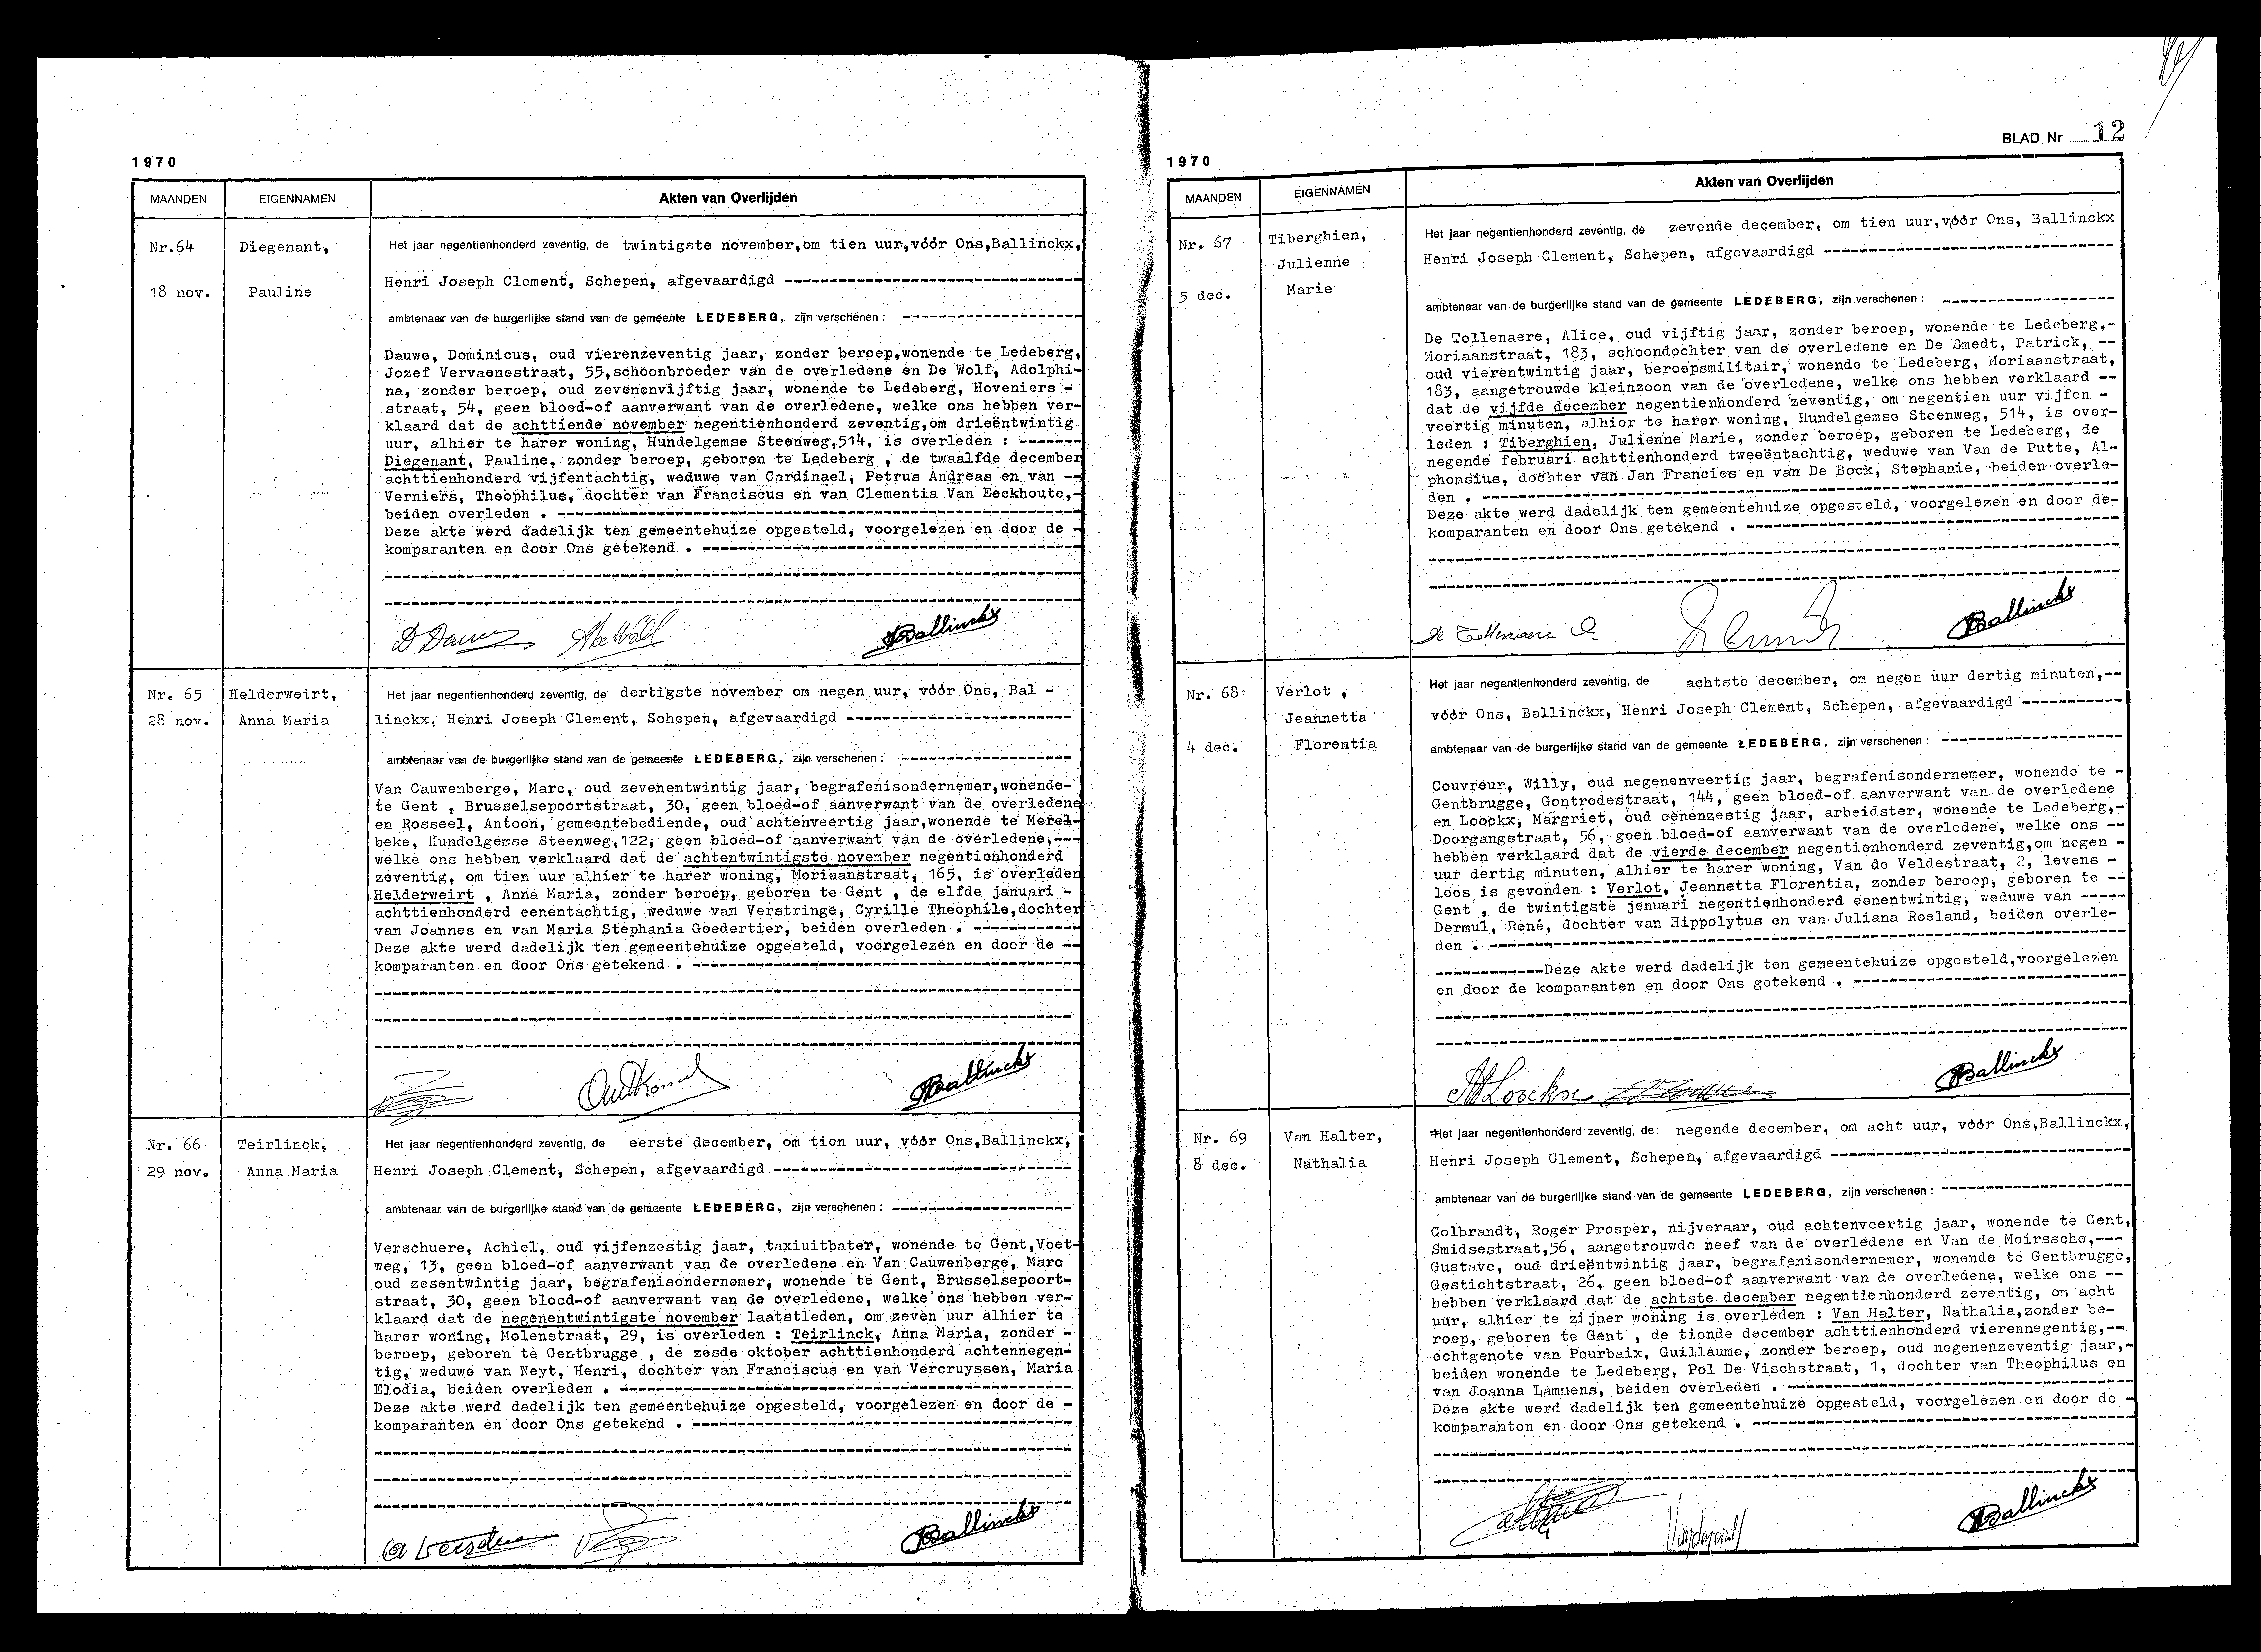 1970
MAANDEN EIGENNAMEN Akten van Overlijden
Nr.64 Diegenant,
18 nov. Pauline
Het jaar negentienhonderd zeventig, de twintigste november,om tien uur,vóór Ons,Ballinckx,
Henri Joseph Clement, Schepen, afgevaardigd ---------------------------------
ambtenaar van de burgerlijke stand van de gemeente LEDEBERG, zijn verschenen : --------------------
Dauwe, Dominicus, oud vierenzeventig jaar, zonder beroep,wonende te Ledeberg,
Jozef Vervaenestraat, 55,schoonbroeder van de overledene en De Wolf, Adolphi-
na, zonder beroep, oud zevenenvijftig jaar, wonende te Ledeberg, Hoveniers -
straat, 54, geen bloed-of aanverwant van de overledene, welke ons hebben ver-
klaard dat de achttiende november negentienhonderd zeventig,om drieëntwintig
uur, alhier te harer woning, Hundelgemse Steenweg,514, is overleden : -------
Diegenant, Pauline, zonder beroep, geboren te Ledeberg , de twaalfde december
achttienhonderd vijfentachtig, weduwe van Cardinael, Petrus Andreas en van --
Verniers, Theophilus, dochter van Franciscus en van Clementia Van Eeckhoute,-
beiden overleden . ----------------------------------------------------------
Deze akte werd dadelijk ten gemeentehuize opgesteld, voorgelezen en door de -
komparanten en door Ons getekend . ------------------------------------------
Ballinckx
Nr. 65 Helderweirt,
28 nov. Anna Maria
Het jaar negentienhonderd zeventig, de dertigste november om negen uur, vóór Ons, Bal -
linckx, Henri Joseph Clement, Schepen, afgevaardigd -------------------------
ambtenaar van de burgerlijke stand van de gemeente LEDEBERG, zijn verschenen : -------------------
Van Cauwenberge, Marc, oud zevenentwintig jaar, begrafenisondernemer,wonende-
te Gent , Brusselsepoortstraat, 30, geen bloed-of aanverwant van de overledene
en Rosseel, Antoon, gemeentebediende, oud achtenveertig jaar,wonende te Merel-
beke, Hundelgemse Steenweg,122, geen bloed-of aanverwant van de overledene,---
welke ons hebben verklaard dat de achtentwintigste november negentienhonderd
zeventig, om tien uur alhier te harer woning, Moriaanstraat, 165, is overleden
Helderweirt , Anna Maria, zonder beroep, geboren te Gent , de elfde januari -
achttienhonderd eenentachtig, weduwe van Verstringe, Cyrille Theophile,dochter
van Joannes en van Maria Stephania Goedertier, beiden overleden . -----------
Deze akte werd dadelijk ten gemeentehuize opgesteld, voorgelezen en door de --
komparanten en door Ons getekend . ------------------------------------------
Ballinckx
Nr. 66 Teirlinck,
29 nov. Anna Maria
Het jaar negentienhonderd zeventig, de eerste december, om tien uur, vóór Ons,Ballinckx,
Henri Joseph Clement, Schepen, afgevaardigd ---------------------------------
ambtenaar van de burgerlijke stand van de gemeente LEDEBERG, zijn verschenen : --------------------
Verschuere, Achiel, oud vijfenzestig jaar, taxiuitbater, wonende te Gent,Voet-
weg, 13, geen bloed-of aanverwant van de overledene en Van Cauwenberge, Marc
oud zesentwintig jaar, begrafenisondernemer, wonende te Gent, Brusselsepoort-
straat, 30, geen bloed-of aanverwant van de overledene, welke ons hebben ver-
klaard dat de negenentwintigste november laatstleden, om zeven uur alhier te
harer woning, Molenstraat, 29, is overleden : Teirlinck, Anna Maria, zonder -
beroep, geboren te Gentbrugge , de zesde oktober achttienhonderd achtennegen-
tig, weduwe van Neyt, Henri, dochter van Franciscus en van Vercruyssen, Maria
Elodia, beiden overleden . --------------------------------------------------
Deze akte werd dadelijk ten gemeentehuize opgesteld, voorgelezen en door de -
komparanten en door Ons getekend . ------------------------------------------
Ballinckx
BLAD Nr 12
1970
MAANDEN EIGENNAMEN Akten van Overlijden
Nr. 67 Tiberghien,
Julienne
5 dec. Marie
Het jaar negentienhonderd zeventig, de zevende december, om tien uur,vóór Ons, Ballinckx
Henri Joseph Clement, Schepen, afgevaardigd --------------------------------
ambtenaar van de burgerlijke stand van de gemeente LEDEBERG, zijn verschenen : -------------------
De Tollenaere, Alice, oud vijftig jaar, zonder beroep, wonende te Ledeberg,-
Moriaanstraat, 183, schoondochter van de overledene en De Smedt, Patrick, --
oud vierentwintig jaar, beroepsmilitair, wonende te Ledeberg, Moriaanstraat,
183, aangetrouwde kleinzoon van de overledene, welke ons hebben verklaard --
dat de vijfde december negentienhonderd zeventig, om negentien uur vijfen -
veertig minuten, alhier te harer woning, Hundelgemse Steenweg, 514, is over-
leden : Tiberghien, Julienne Marie, zonder beroep, geboren te Ledeberg, de
negende februari achttienhonderd tweeëntachtig, weduwe van Van de Putte, Al-
phonsius, dochter van Jan Francies en van De Bock, Stephanie, beiden overle-
den . ----------------------------------------------------------------------
Deze akte werd dadelijk ten gemeentehuize opgesteld, voorgelezen en door de-
komparanten en door Ons getekend . -----------------------------------------
De Tollenaere A. Ballinckx
Nr. 68 Verlot ,
Jeannetta
4 dec. Florentia
Het jaar negentienhonderd zeventig, de achtste december, om negen uur dertig minuten,--
vóór Ons, Ballinckx, Henri Joseph Clement, Schepen, afgevaardigd -----------
ambtenaar van de burgerlijke stand van de gemeente LEDEBERG, zijn verschenen : --------------------
Couvreur, Willy, oud negenenveertig jaar, begrafenisondernemer, wonende te -
Gentbrugge, Gontrodestraat, 144, geen bloed-of aanverwant van de overledene
en Loockx, Margriet, oud eenenzestig jaar, arbeidster, wonende te Ledeberg,-
Doorgangstraat, 56, geen bloed-of aanverwant van de overledene, welke ons --
hebben verklaard dat de vierde december negentienhonderd zeventig,om negen -
uur dertig minuten, alhier te harer woning, Van de Veldestraat, 2, levens -
loos is gevonden : Verlot, Jeannetta Florentia, zonder beroep, geboren te --
Gent , de twintigste jenuari negentienhonderd eenentwintig, weduwe van -----
Dermul, René, dochter van Hippolytus en van Juliana Roeland, beiden overle-
den . ----------------------------------------------------------------------
------------Deze akte werd dadelijk ten gemeentehuize opgesteld,voorgelezen
en door de komparanten en door Ons getekend . ------------------------------
Ballinckx
Nr. 69 Van Halter,
8 dec. Nathalia
Het jaar negentienhonderd zeventig, de negende december, om acht uur, vóór Ons,Ballinckx,
Henri Joseph Clement, Schepen, afgevaardigd ---------------------------------
ambtenaar van de burgerlijke stand van de gemeente LEDEBERG, zijn verschenen : ---------------------
Colbrandt, Roger Prosper, nijveraar, oud achtenveertig jaar, wonende te Gent,
Smidsestraat,56, aangetrouwde neef van de overledene en Van de Meirssche,---
Gustave, oud drieëntwintig jaar, begrafenisondernemer, wonende te Gentbrugge,
Gestichtstraat, 26, geen bloed-of aanverwant van de overledene, welke ons --
hebben verklaard dat de achtste december negentienhonderd zeventig, om acht
uur, alhier te zijner woning is overleden : Van Halter, Nathalia,zonder be-
roep, geboren te Gent , de tiende december achttienhonderd vierennegentig,--
echtgenote van Pourbaix, Guillaume, zonder beroep, oud negenenzeventig jaar,-
beiden wonende te Ledeberg, Pol De Vischstraat, 1, dochter van Theophilus en
van Joanna Lammens, beiden overleden . --------------------------------------
Deze akte werd dadelijk ten gemeentehuize opgesteld, voorgelezen en door de -
komparanten en door Ons getekend . ------------------------------------------
Ballinckx